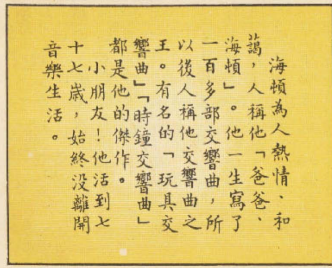 海頓為人熱情、和
藹，人稱他「爸爸、
海頓」。他一生寫了
一百多部交響曲，所
以後人稱他交響曲之
王。有名的「玩具交
響曲」「時鐘交響曲」
都是他的傑作。
小朋友！他活到七
十七歲，始終没離開
音樂生活。